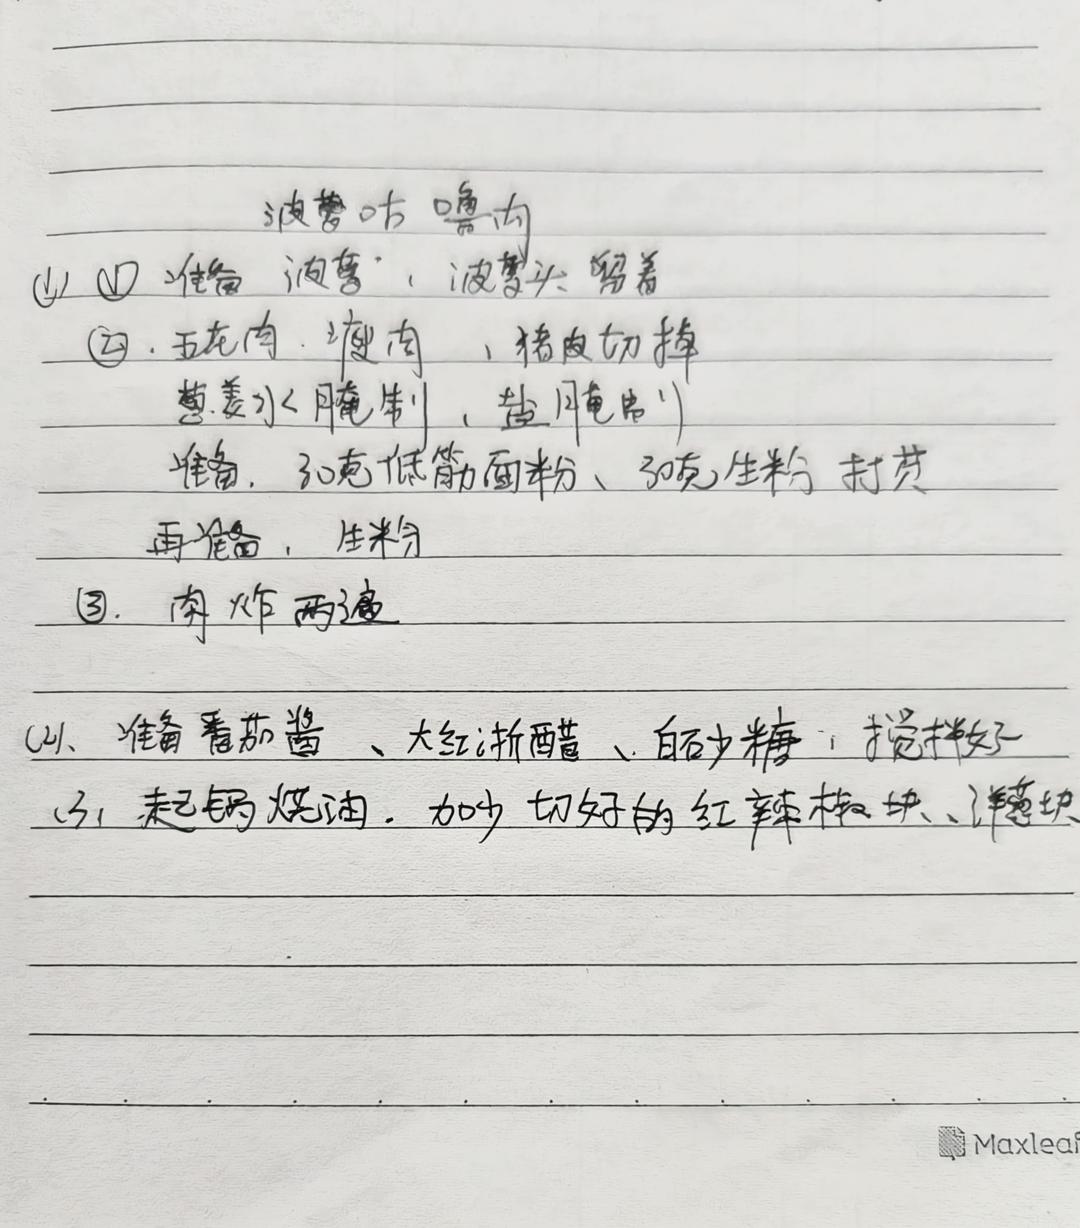 波萝咕噜肉
(1) ① 准备 波萝，波萝头 留着
②. 五花肉. 瘦肉 ，猪皮切掉
葱姜水腌制，盐腌制
准备. 30克低筋面粉、30克生粉 打
再准备，生粉
③. 肉炸两遍
(2)、准备番茄酱、大红浙醋、白砂糖，搅拌好
(3) 起锅烧油. 加少切好的红辣椒块、洋葱块
Maxleaf